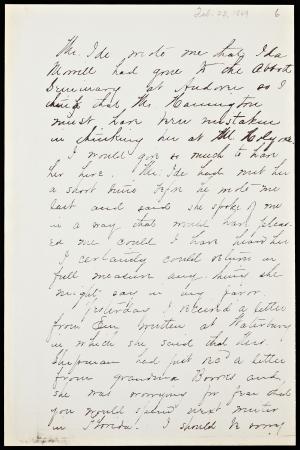 Feb. 22, 1869 6
Mr. Ide wrote me that Ida
Morrell had gone to the Abbott
Seminary at Andover so I
think that Mr. Harrington
must have been mistaken
in thinking her at Mt Holyoke
I would give so much to have
her here. Mr. Ide had met her
a short time before he wrote me
last and said she spoke of me
in a way that would have pleas-
ed me could I have heard her
I certainly could return in
full measure any thing she
might say in my favor.
Yesterday I received a letter
from Em, written at Waterbury
in which she said that Mrs.
Shipman had just rec'd a letter
from grandma Bowers and
she was worrying for fear that
you would spend next winter
in Florida. I should be sorry